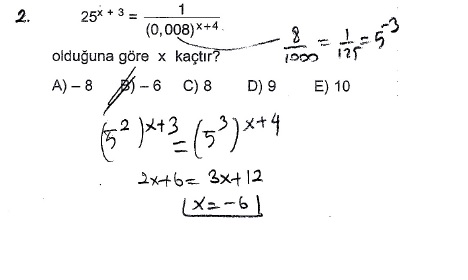 2. 25^(x + 3) = 1 / (0,008)^(x+4)
8/1000 = 1/125 = 5^-3
olduğuna göre x kaçtır?
A) – 8 B) – 6 C) 8 D) 9 E) 10
(5^2)^(x+3) = (5^3)^(x+4)
2x+6 = 3x+12
x = -6